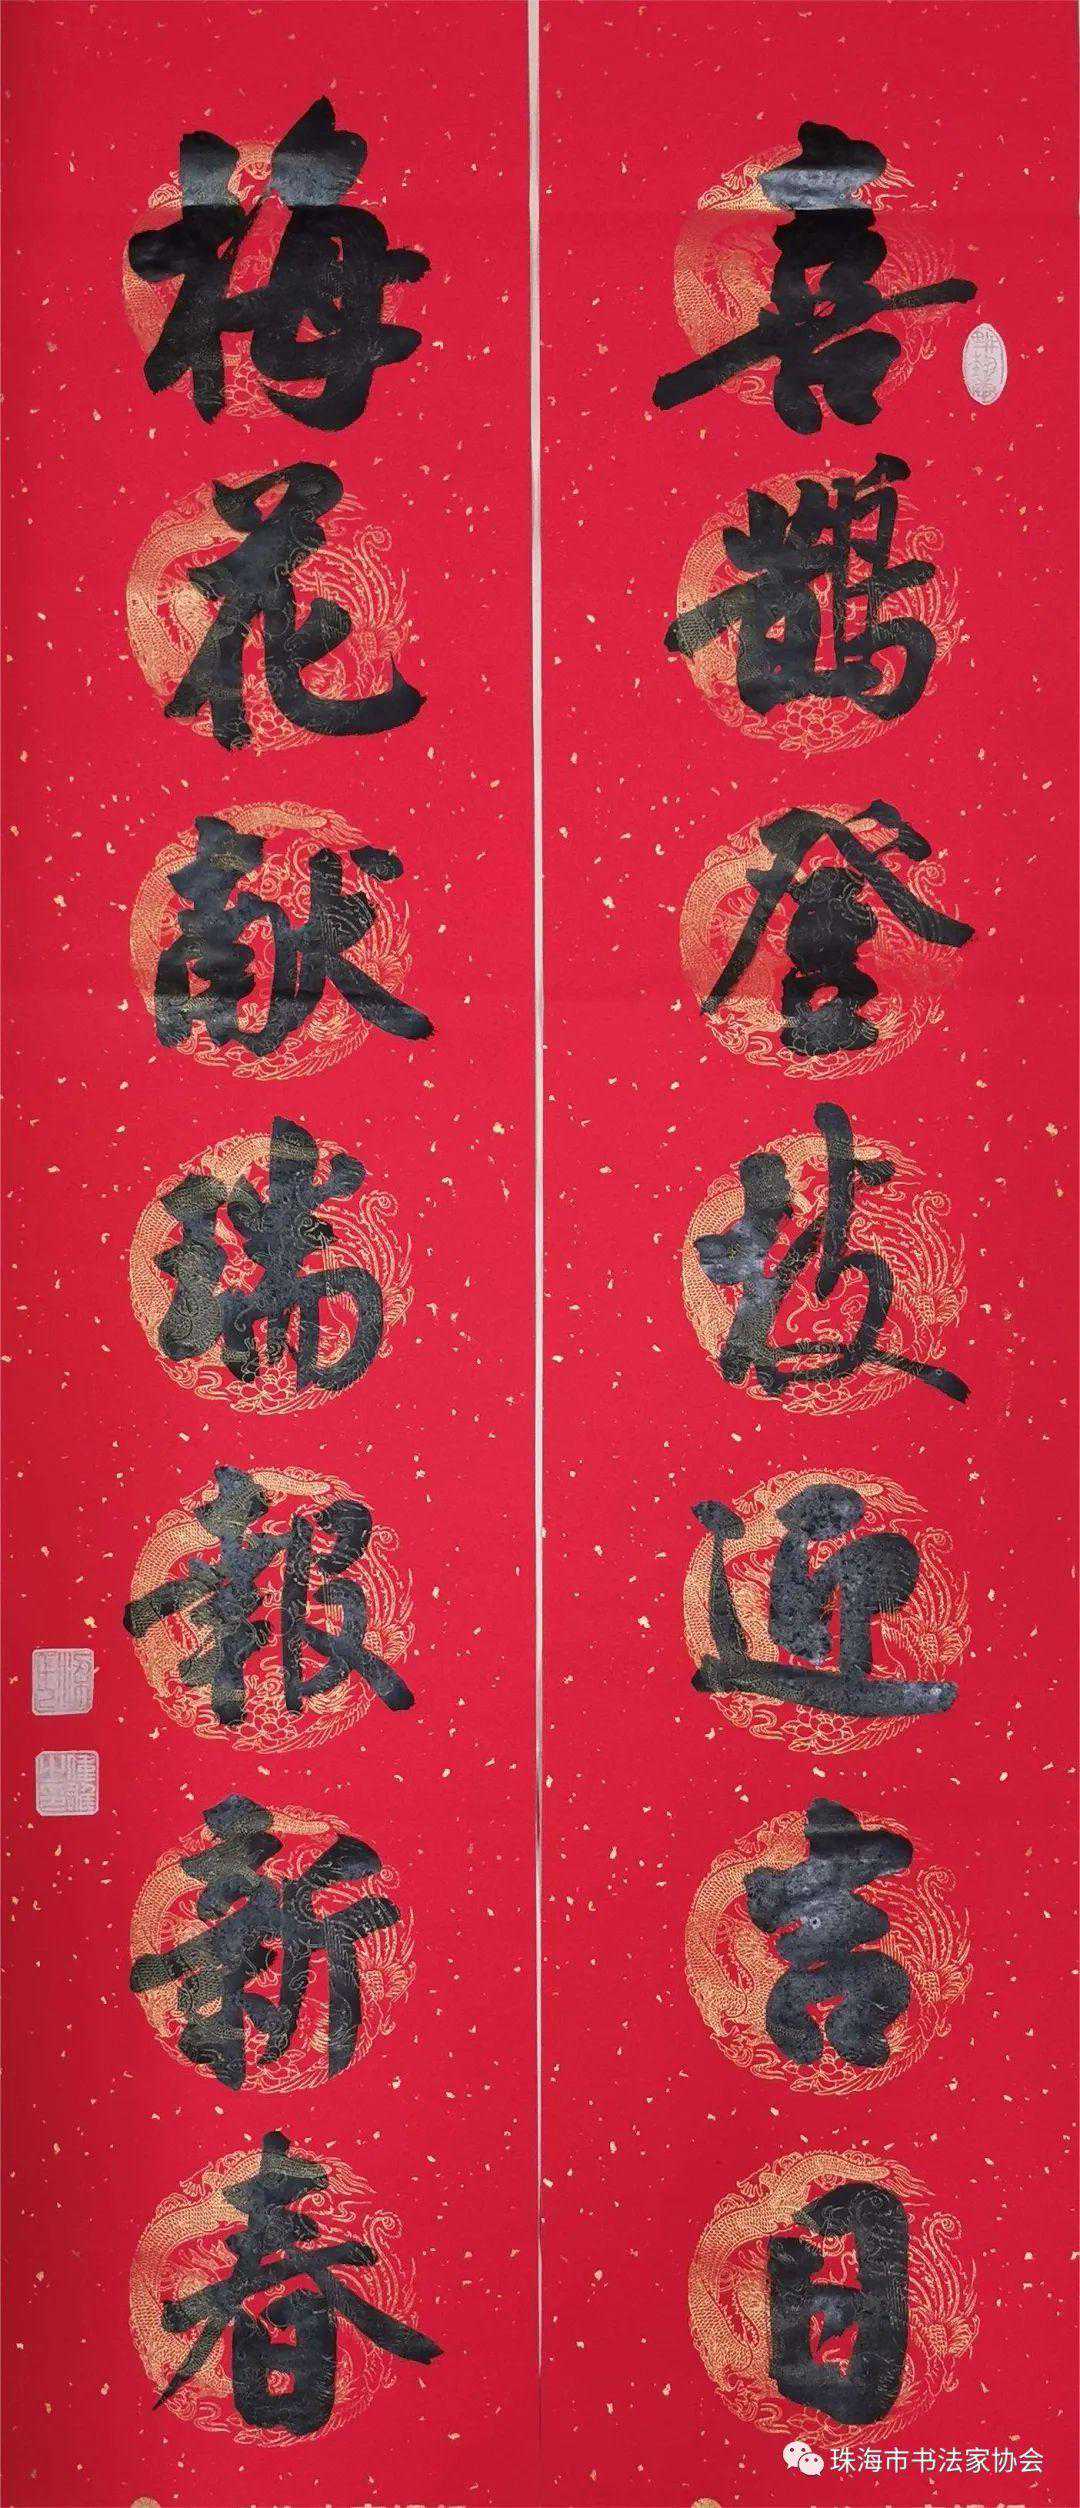 喜鵲登枝迎吉日
梅花献瑞報新春
珠海市书法家协会